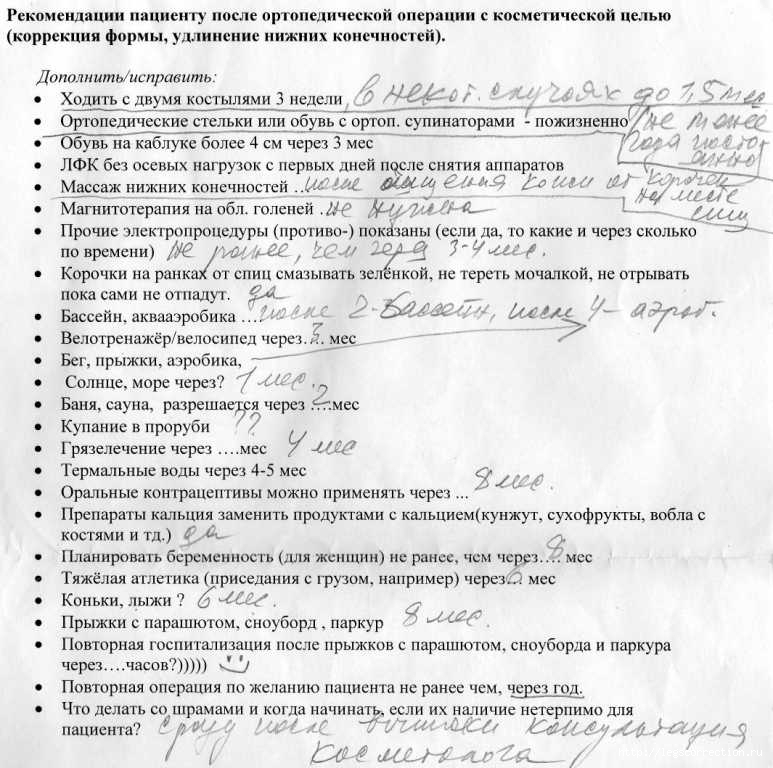 Рекомендации пациенту после ортопедической операции с косметической целью
(коррекция формы, удлинение нижних конечностей).
Дополнить/исправить:
• Ходить с двумя костылями 3 недели, в некот. случаях до 1,5 мес
• Ортопедические стельки или обувь с ортоп. супинаторами - пожизненно не менее
года постоянно
• Обувь на каблуке более 4 см через 3 мес
• ЛФК без осевых нагрузок с первых дней после снятия аппаратов
• Массаж нижних конечностей … после очищения кожи от корочек
на месте
спиц
• Магнитотерапия на обл. голеней … не нужна
• Прочие электропроцедуры (противо-) показаны (если да, то какие и через сколько
по времени) не ранее, чем через 3-4 мес.
• Корочки на ранках от спиц смазывать зелёнкой, не тереть мочалкой, не отрывать
пока сами не отпадут. да
• Бассейн, аквааэробика …. после 2 - бассейн, после 4 - аэроб.
• Велотренажёр/велосипед через 3 мес
• Бег, прыжки, аэробика,
• Солнце, море через? 1 мес.
• Баня, сауна, разрешается через ….2 мес
• Купание в проруби ??
• Грязелечение через ….мес 4 мес
• Термальные воды через 4-5 мес
• Оральные контрацептивы можно применять через ... 8 мес.
• Препараты кальция заменить продуктами с кальцием(кунжут, сухофрукты, вобла с
костями и тд.) да
• Планировать беременность (для женщин) не ранее, чем через…. 8 мес
• Тяжёлая атлетика (приседания с грузом, например) через… мес
• Коньки, лыжи ? 6 мес.
• Прыжки с парашютом, сноуборд , паркур 8 мес.
• Повторная госпитализация после прыжков с парашютом, сноуборда и паркура
через….часов?)))))
• Повторная операция по желанию пациента не ранее чем, через год.
• Что делать со шрамами и когда начинать, если их наличие нетерпимо для
пациента? сразу после выписки консультация
косметолога